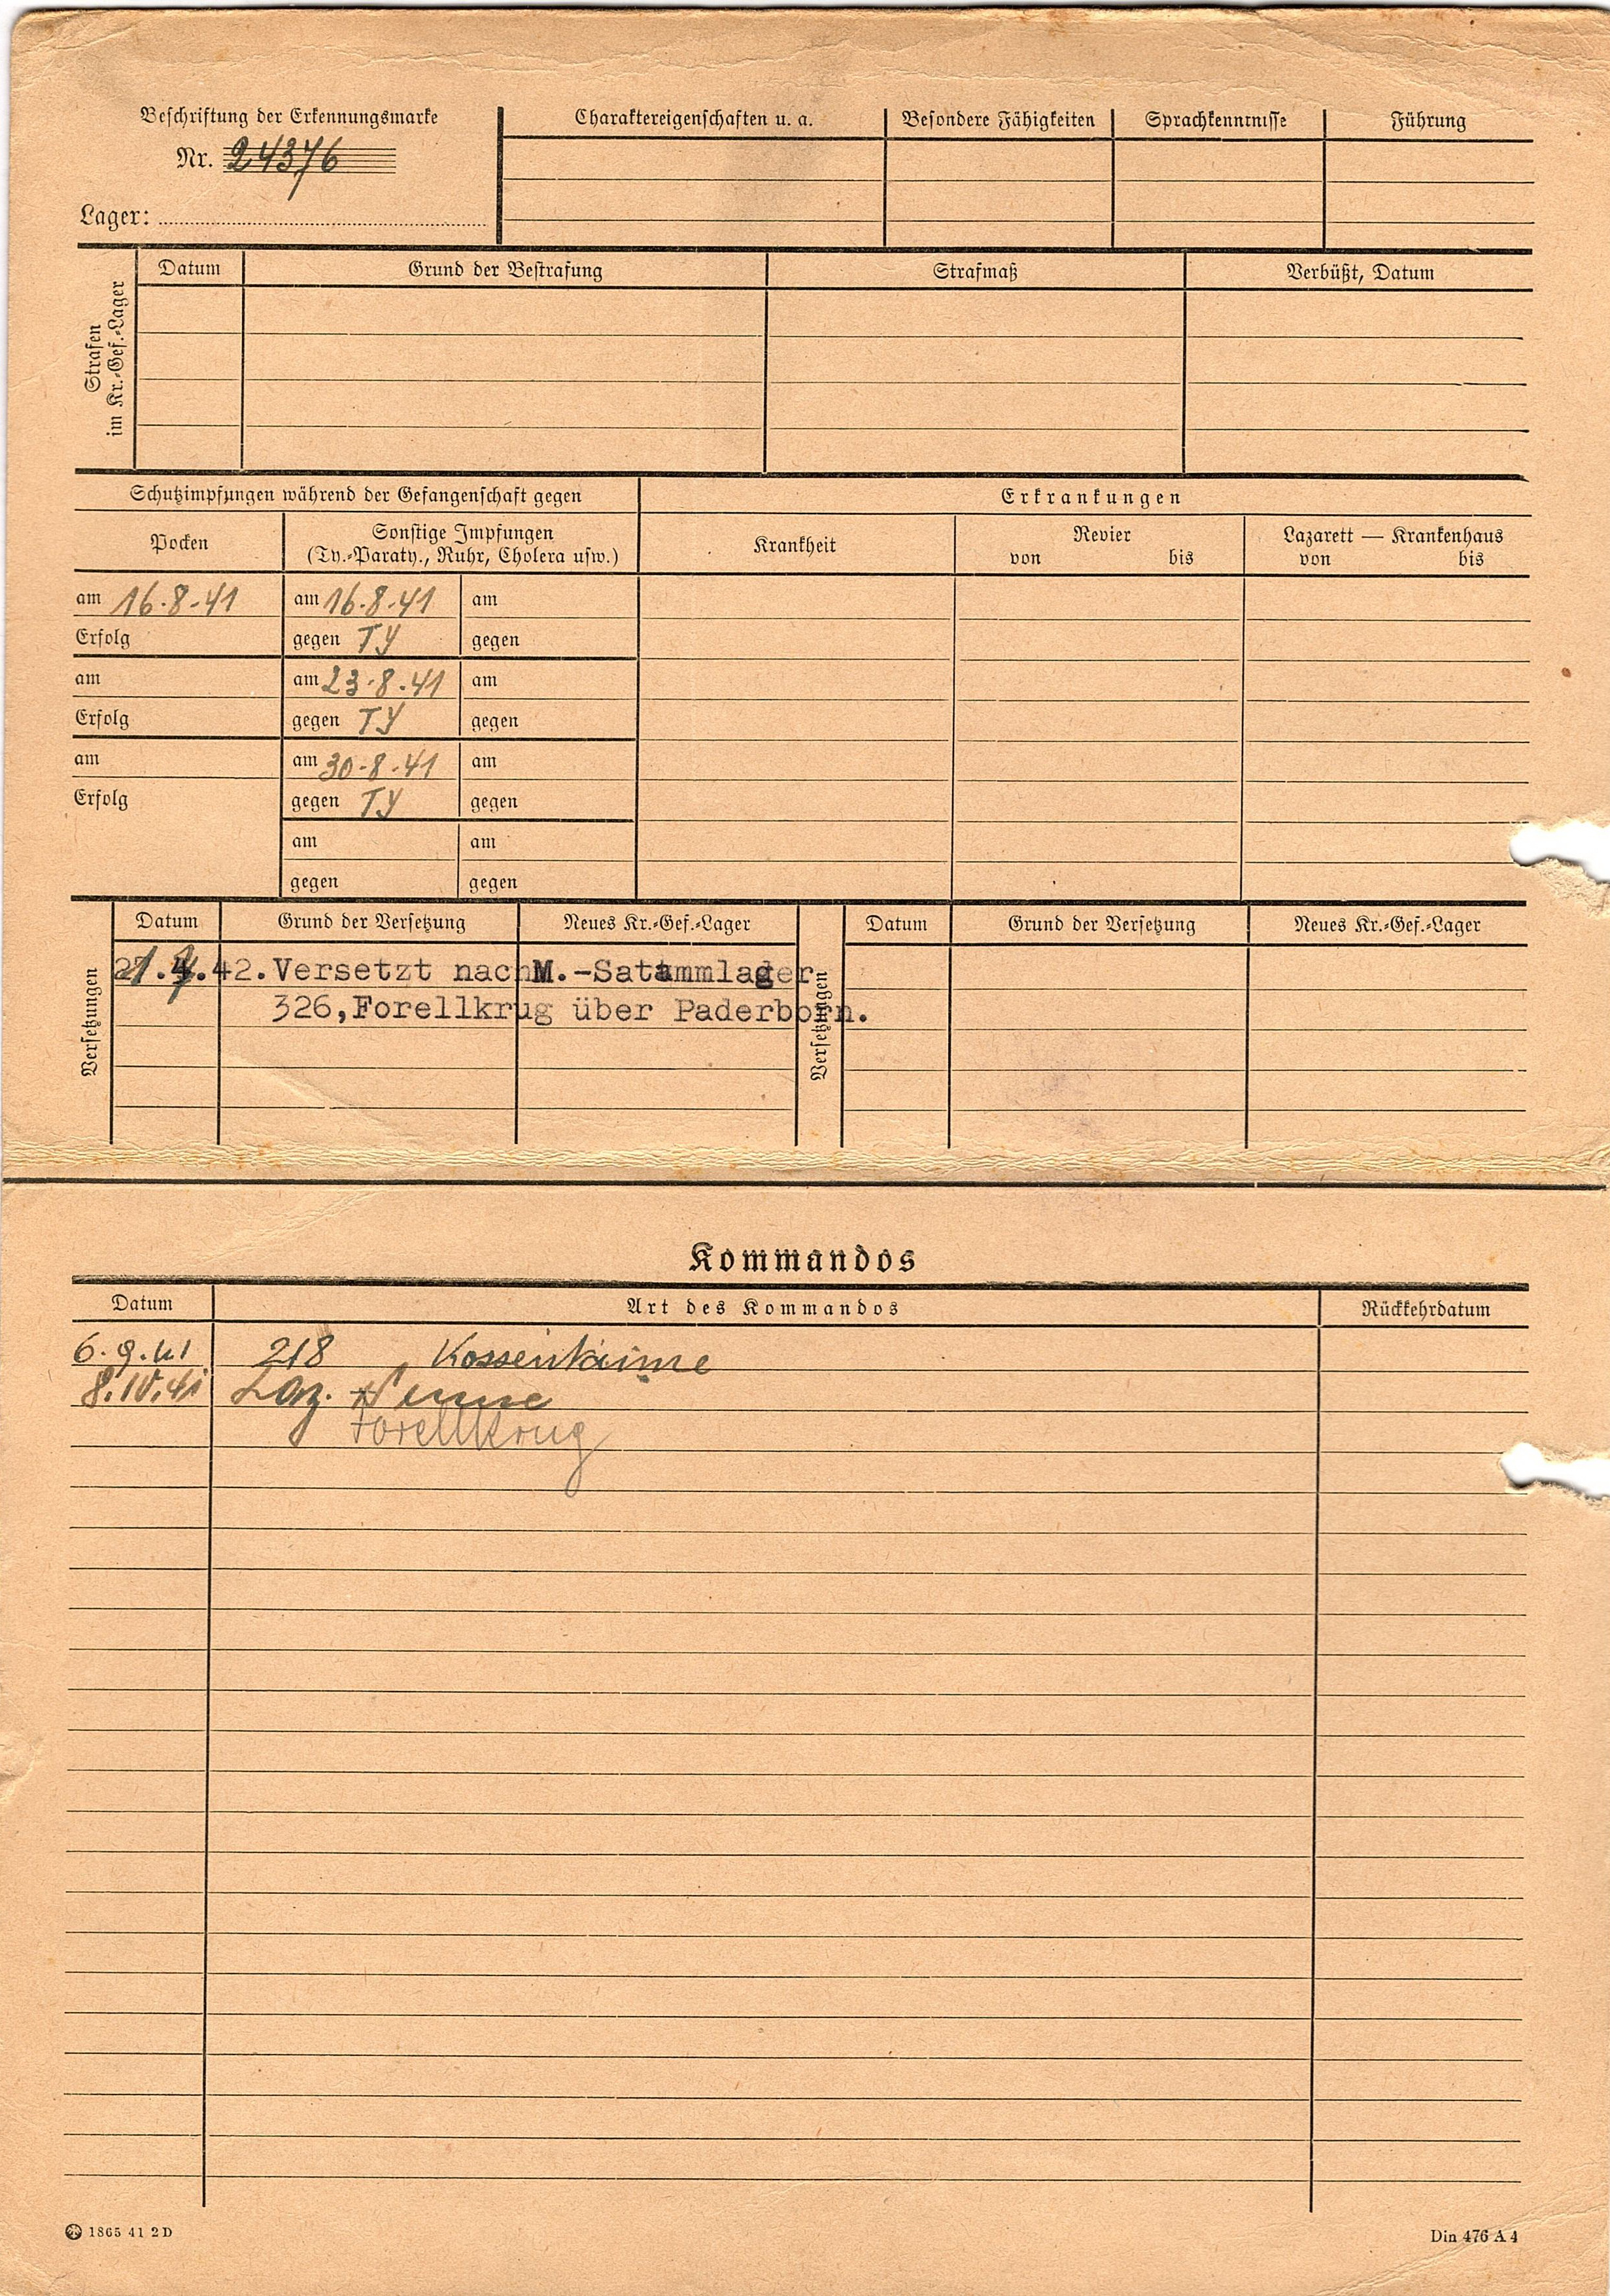 Beschriftung der Erkennungsmarke
Nr. 24376
Lager:
Charaktereigenschaften u. a. Besondere Fähigkeiten Sprachkenntnisse Führung
Strafen
im Kr.-Gef.-Lager
Datum Grund der Bestrafung Strafmaß Verbüßt, Datum
Schutzimpfungen während der Gefangenschaft gegen Erkrankungen
Pocken Sonstige Impfungen
(Ty.-Paraty., Ruhr, Cholera usw.)
Krankheit Revier Lazarett — Krankenhaus
von bis von bis
am 16.8.41 am 16.8.41 am
Erfolg gegen TY gegen
am am 23.8.41 am
Erfolg gegen TY gegen
am am 30.8.41 am
Erfolg gegen TY gegen
am am
gegen gegen
Versetzungen
Datum Grund der Versetzung Neues Kr.-Gef.-Lager
.42. Versetzt nach M.-Satammlager
326, Forellkrug über Paderborn.
Versetzungen
Datum Grund der Versetzung Neues Kr.-Gef.-Lager
Kommandos
Datum Art des Kommandos Rückkehrdatum
6.9.41 218
8.IV.41 Laz.
Forellkrug
1865 41 2 D
Din 476 A 4